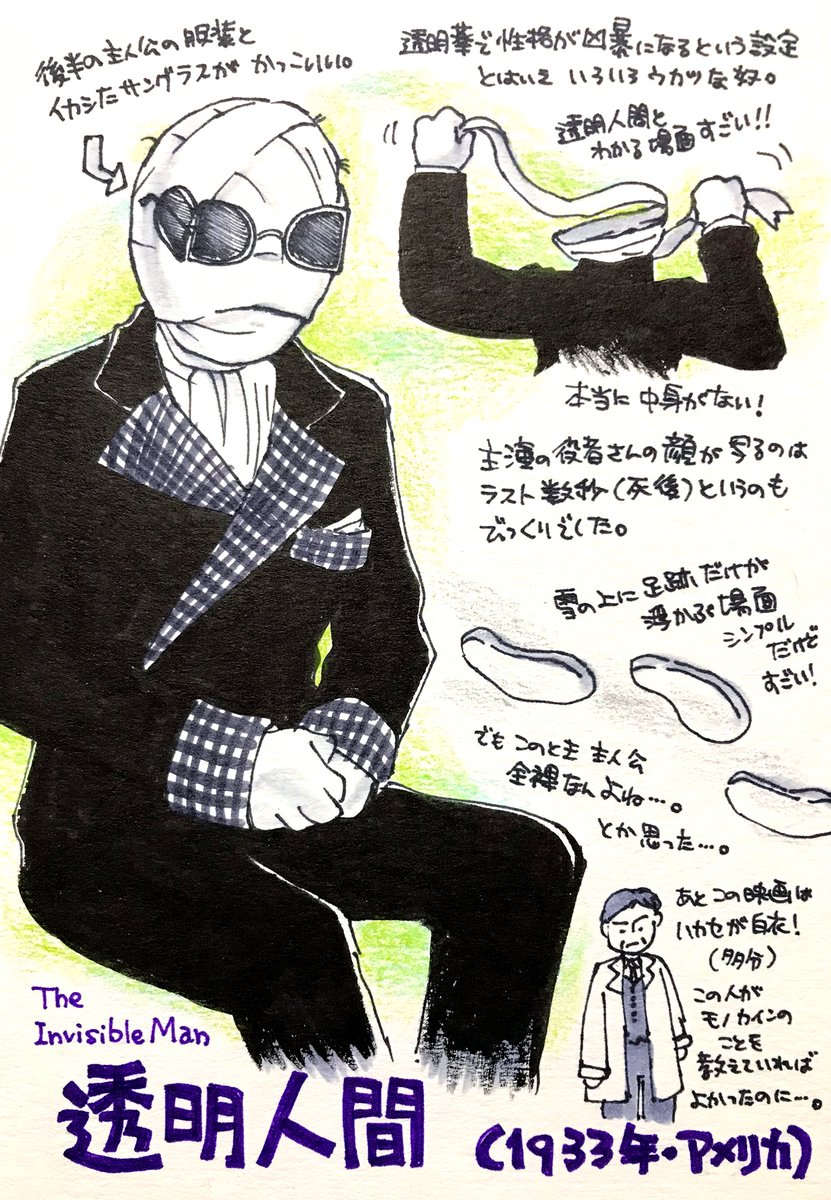 後半の主人公の服装と
イカシたサングラスが かっこいい。
透明薬で性格が凶暴になるという設定
とはいえ いろいろウカツな奴。
透明人間と
わかる場面すごい!!
本当に中身がない!
主演の役者さんの顔が写るのは
ラスト数秒(死後)というのも
びっくりでした。
雪の上に足跡だけが
浮かぶ場面
シンプル
だけど
すごい!
でもこのとき主人公
全裸なんよね…。
とか思った…。
あとこの映画は
ハカセが白衣!
(多分)
この人が
モノカインの
ことも
教えていれば
よかったのに…。
The
Invisible Man
透明人間 (1933年・アメリカ)